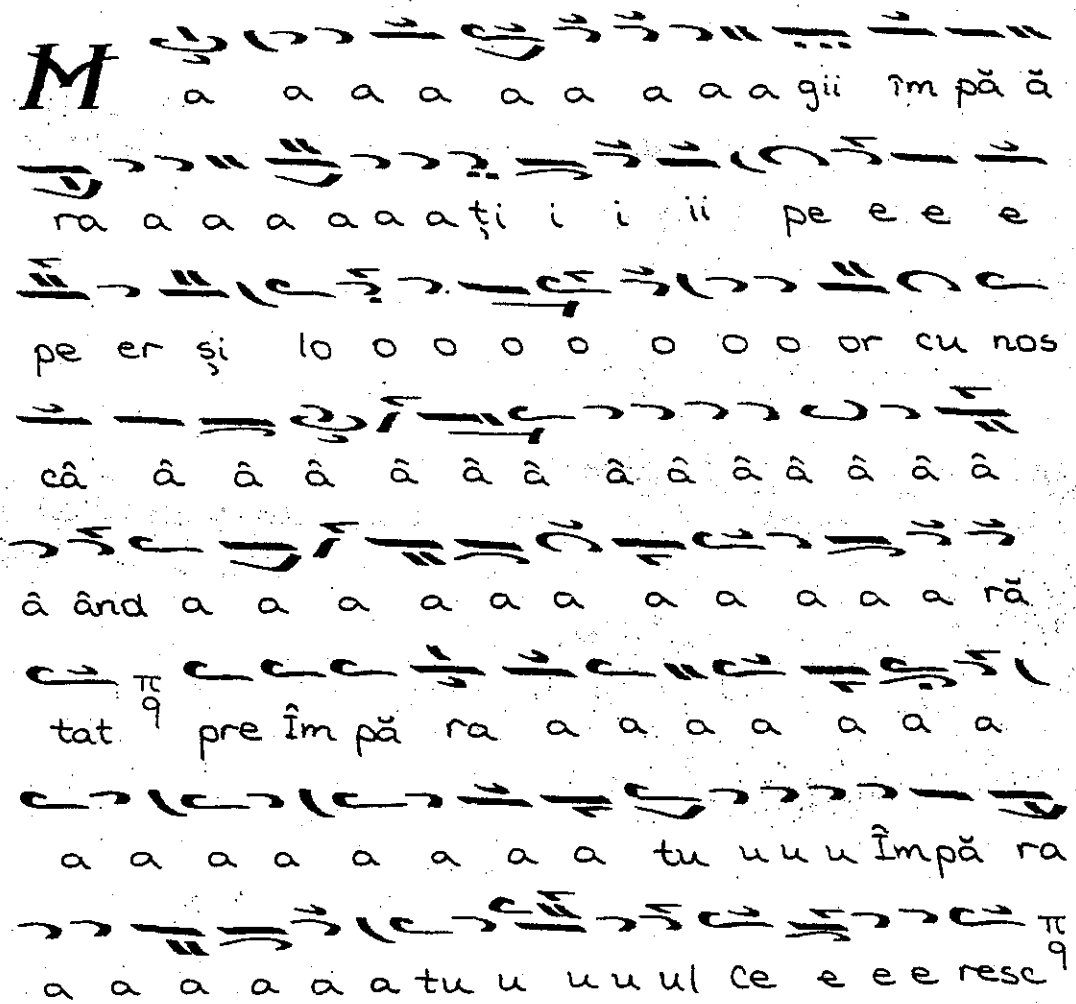 M a a a a a a a a a gii îm pă ă
ra a a a a a a ți i i ii pe e e e
pe er și lo o o o o o o o or cu nos
câ â â â â â â â â â â â â â
â ând a a a a a a a a a a a ră
tat π q pre Îm pă ra a a a a a a a
a a a a a a a a tu u u u Împă ra
a a a a a a tu u u u ul ce e e e resc π q